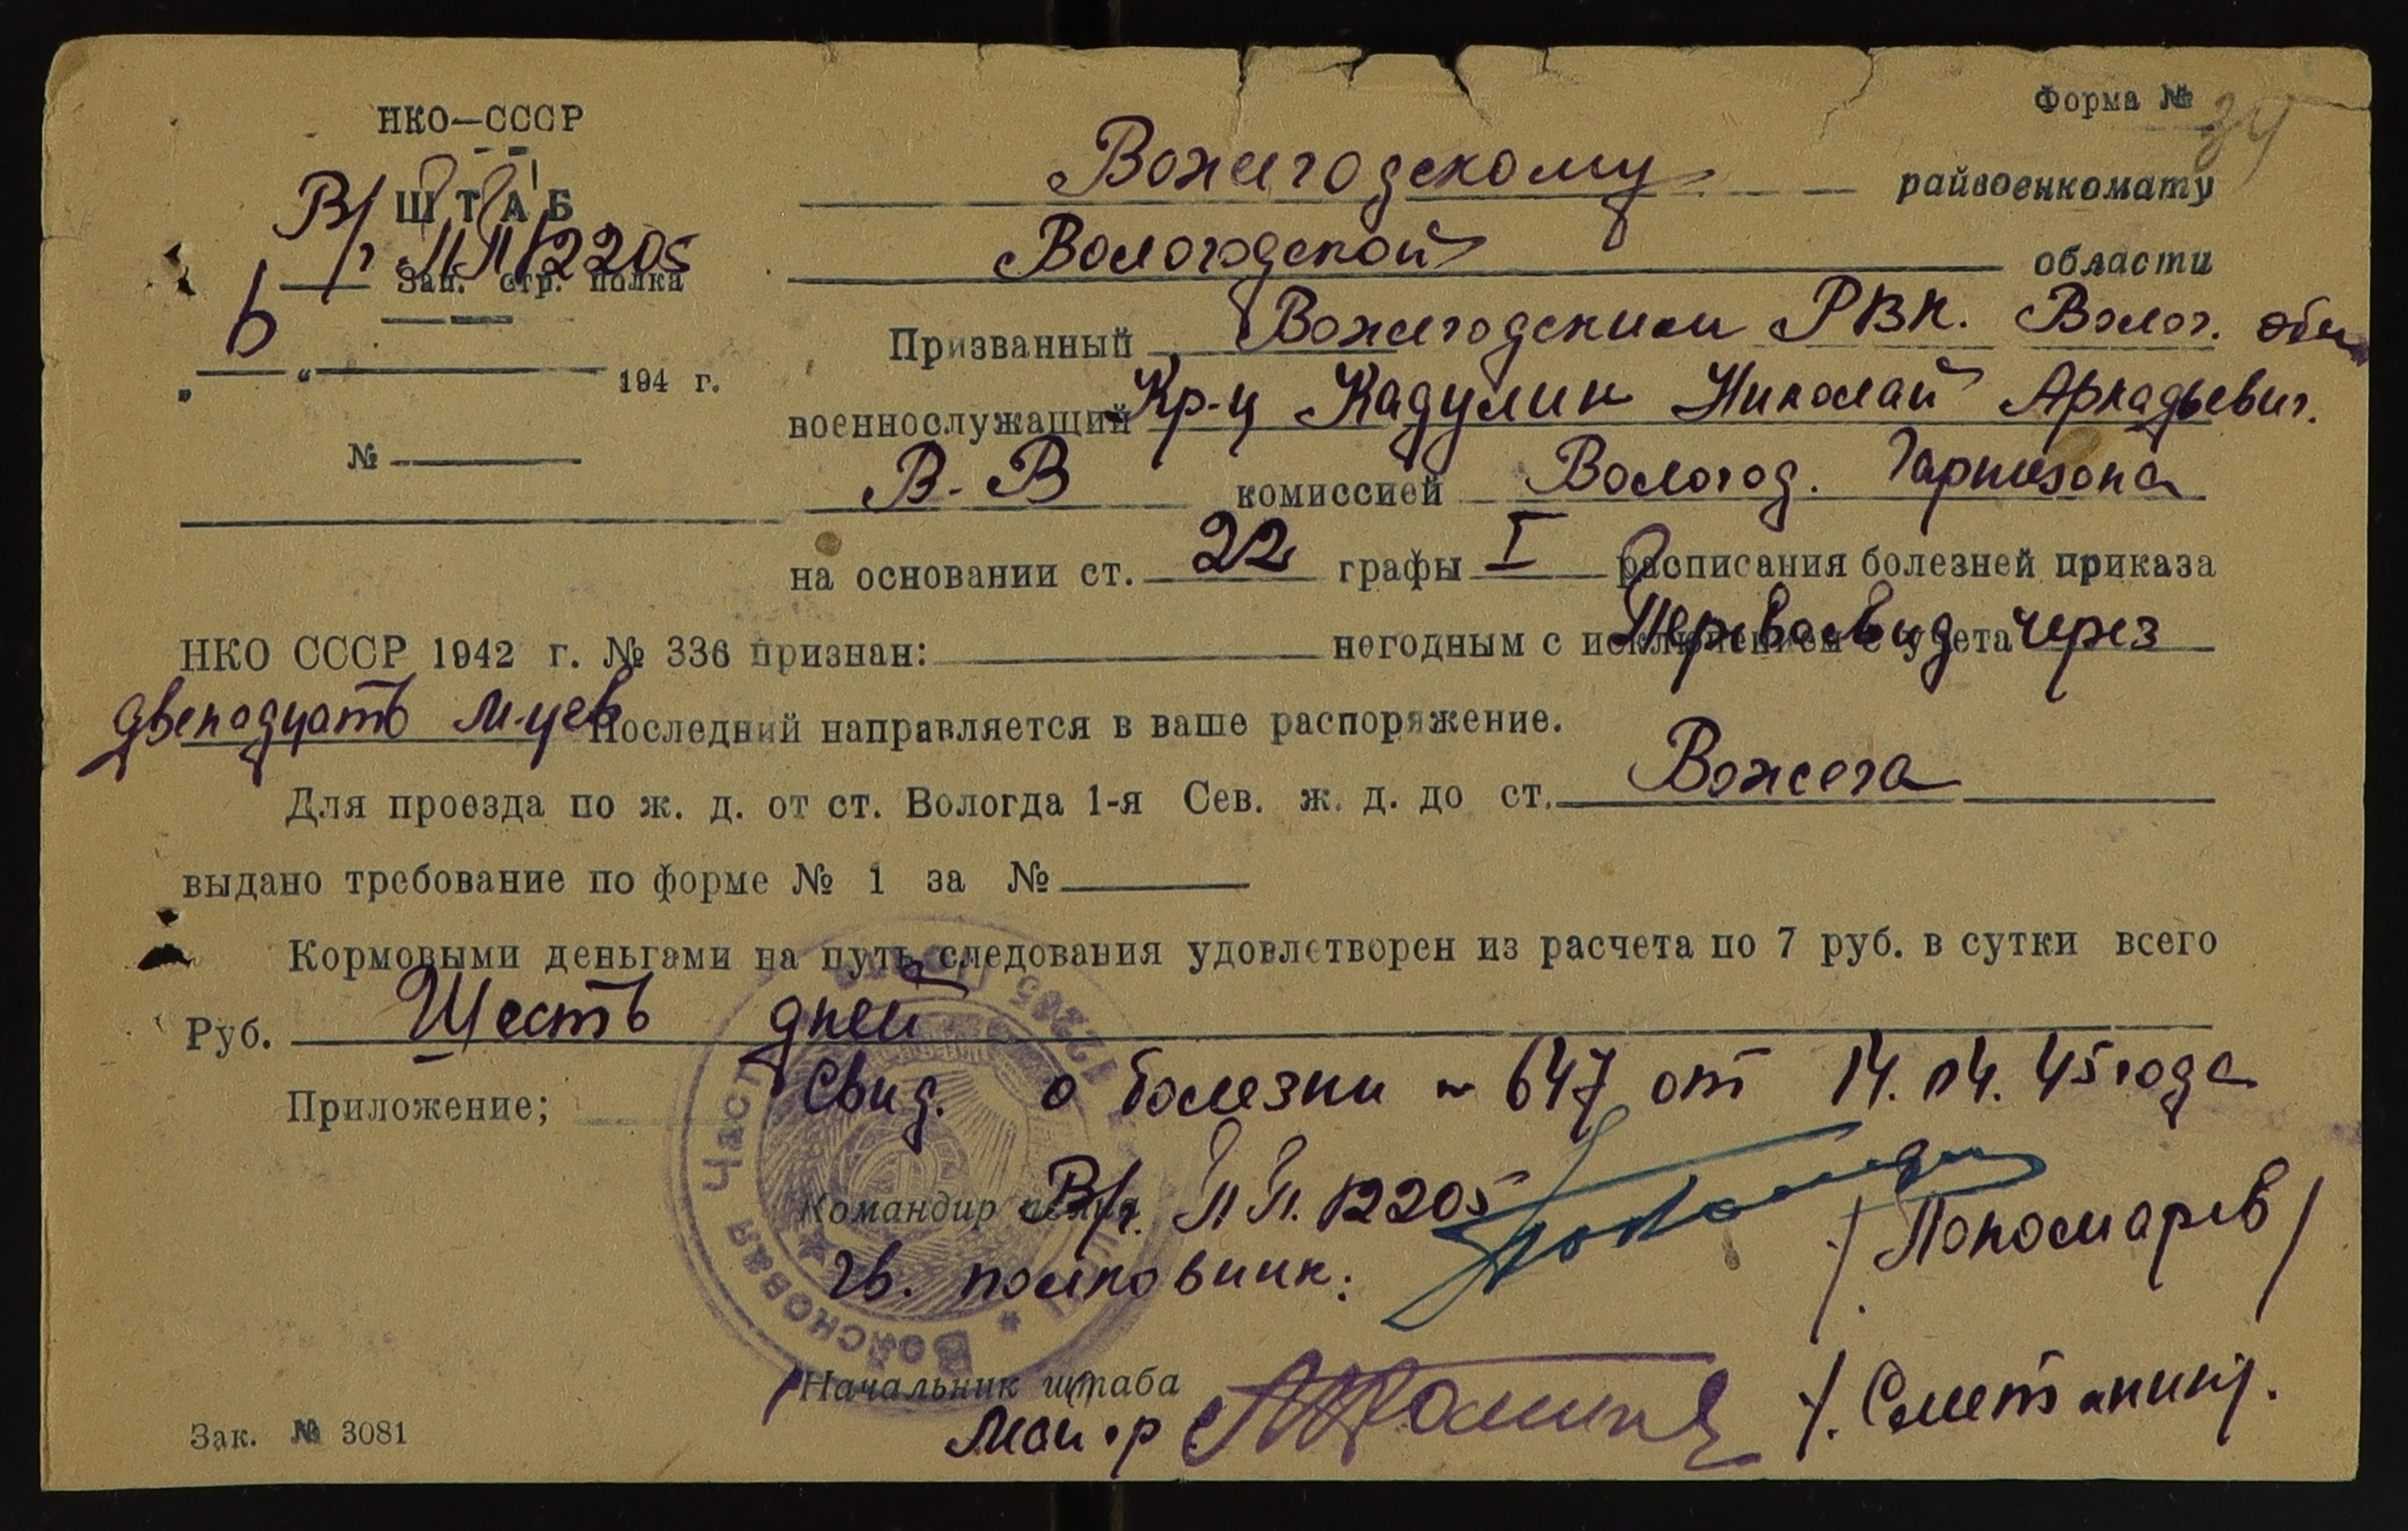 НКО—СССР
Форма № 34
ШТАБ
В/ч ПП 12205
Зап. стр. полка
6
„ “ 194 г.
№
Вожегодскому райвоенкомату
Вологодской области
Призванный Вожегодским РВК. Волог. обл
военнослужащий Кр-ц Кадулин Николай Аркадьевич.
В.-В комиссией Вологод. Гарнизона
на основании ст. 22 графы I расписания болезней приказа
НКО СССР 1942 г. № 336 признан: негодным с исключением с учета Переосвид через
двенадцать м-цев Последний направляется в ваше распоряжение.
Для проезда по ж. д. от ст. Вологда 1-я Сев. ж. д. до ст. Вожега
выдано требование по форме № 1 за №
Кормовыми деньгами на путь следования удовлетворен из расчета по 7 руб. в сутки всего
Руб. Шесть дней
Приложение; Свид. о болезни № 647 от 14.04.45 года
Командир полка В/ч. ПП. 12205
гв. полковник: /Пономарев/
Начальник штаба
Майор /Сметанин/.
Войсковая Часть 12205
Зак. № 3081